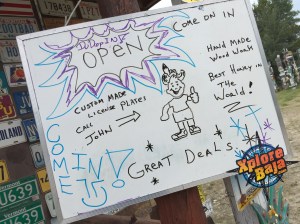 OPEN
COME ON IN
HAND MADE
WOOD WORK
BEST HONEY IN
THE WORLD!
CUSTOM MADE
LICENSE PLATES
CALL
JOHN
COME
IN!
GREAT DEALS
Xplore
Baja
639